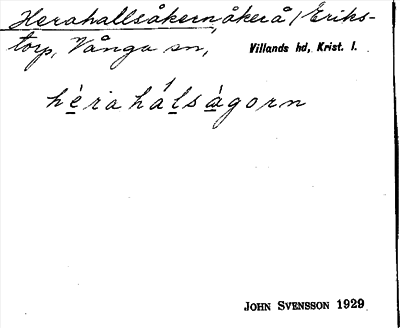 Herahallsåkern, åker å Eriks-
torp, Vånga sn, Villands hd, Krist. l.
hèrahálsàgorn
JOHN SVENSSON 1929